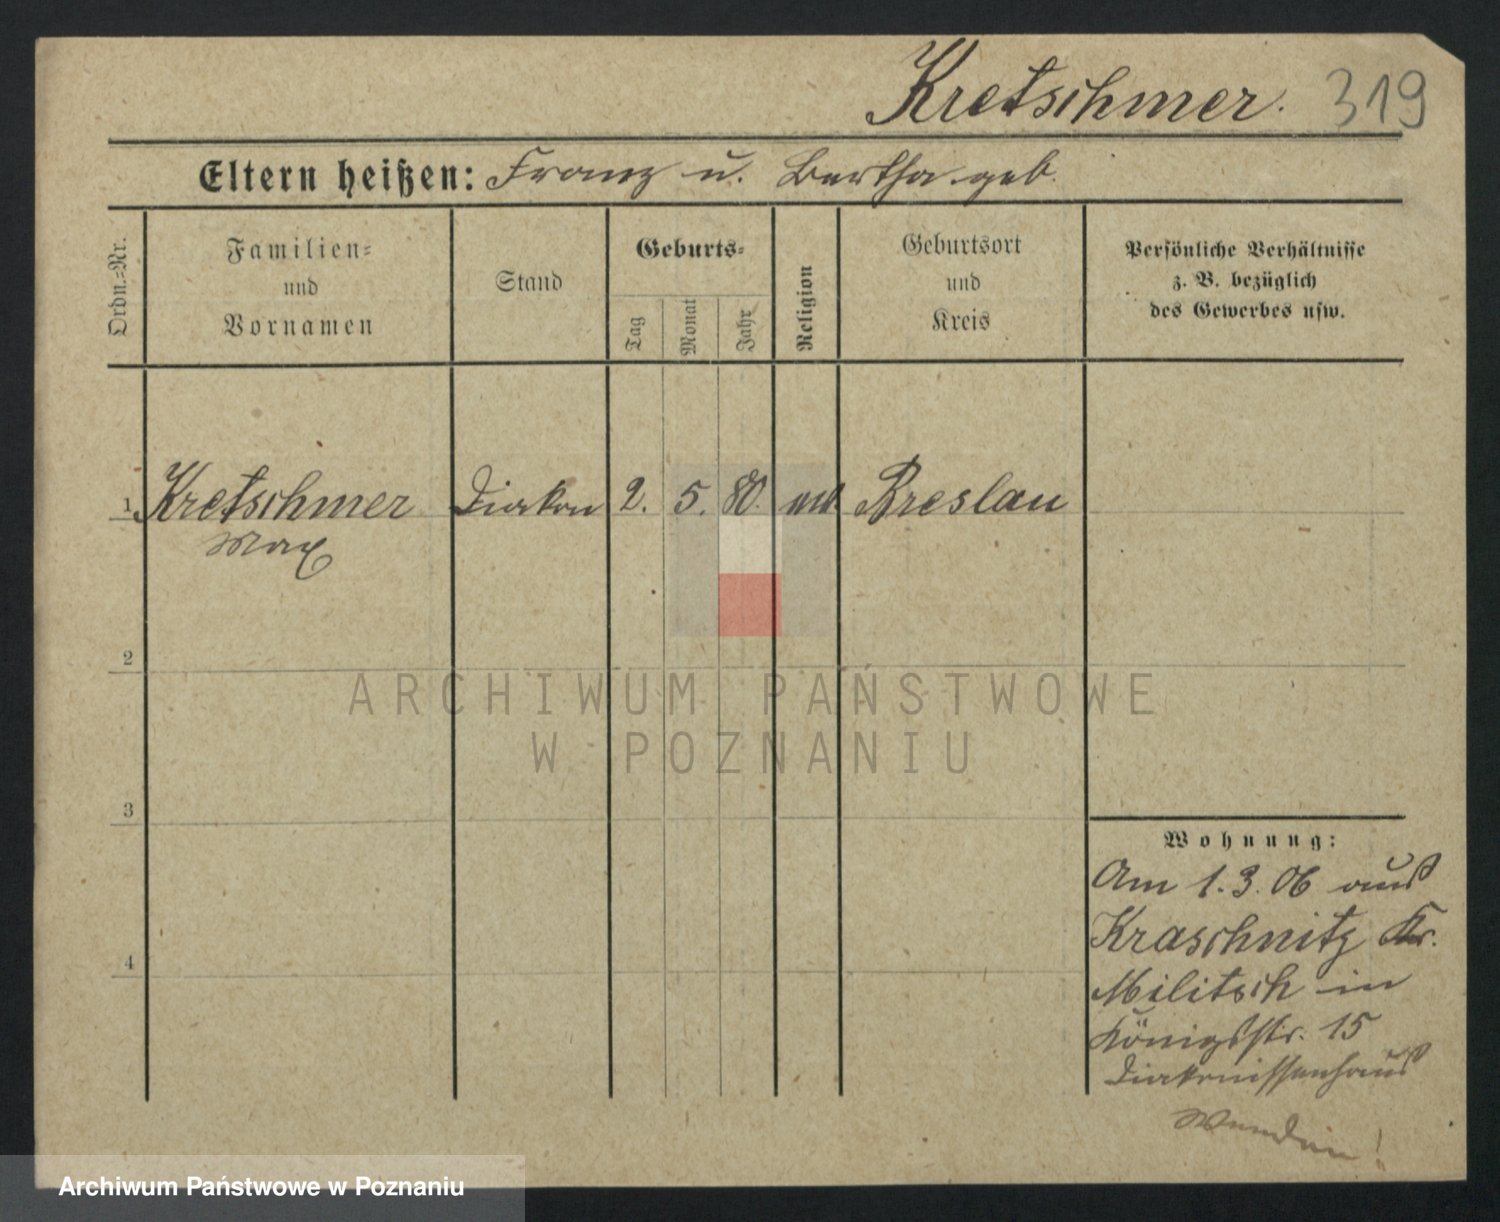 Kretschmer. 319
Eltern heißen: Franz u. Bertha geb.
Ordn.=Nr.
Familien=
und
Vornamen
Stand
Geburts=
Tag
Monat
Jahr
Religion
Geburtsort
und
Kreis
Persönliche Verhältnisse
z. B. bezüglich
des Gewerbes usw.
1 Kretschmer Diakon 2. 5. 80. Breslau
Max
2
ARCHIWUM PAŃSTWOWE
W POZNANIU
3
Wohnung:
Am 1.3.06 aus
Kraschnitz Kr.
4
Militsch in
Königsstr. 15
Diakonissenhaus
Wenden!
Archiwum Państwowe w Poznaniu